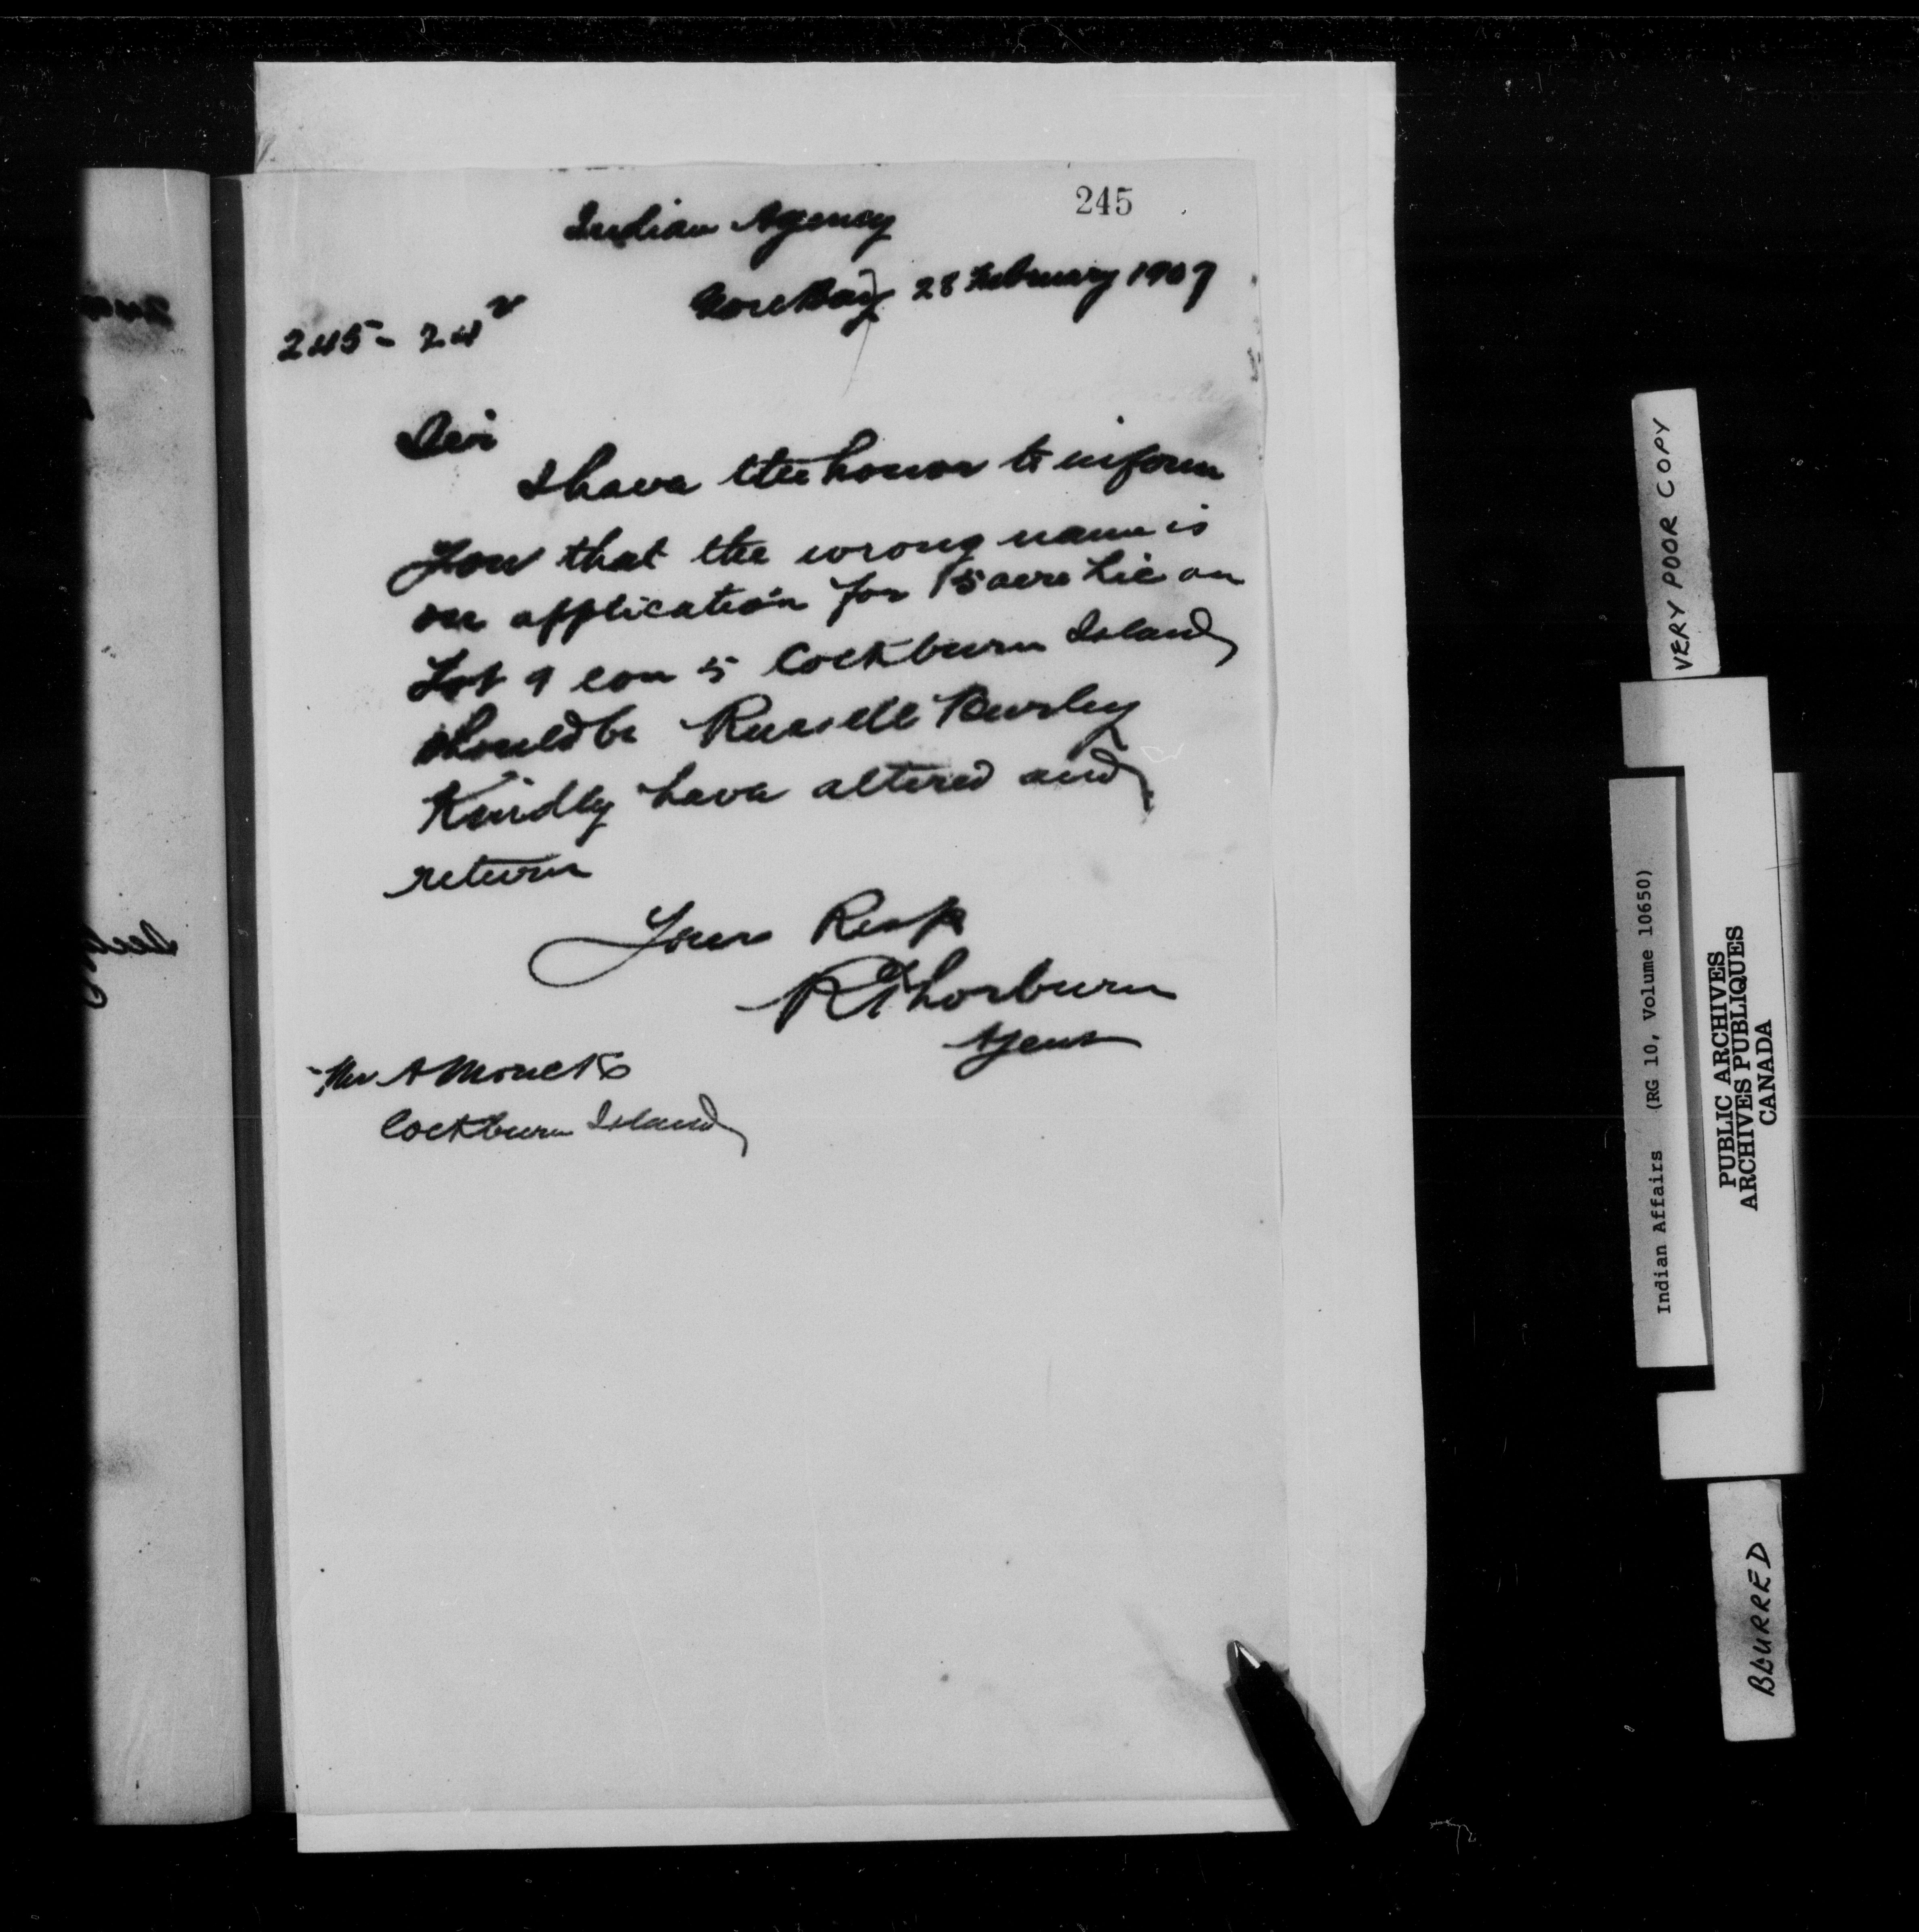 245
Indian Agency
Gore Bay 28 February 1907
245-24
Sir
I have the honor to inform
you that the wrong name is
on application for 15 acre Lic on
Lot 9 con 5 Cockburn Island
should be Russell Burley
Kindly have altered and
return
Yours Resp
R Thorburn
Agent
Mr A Monck
Cockburn Island
VERY POOR COPY
Indian Affairs (RG 10, Volume 10650)
PUBLIC ARCHIVES
ARCHIVES PUBLIQUES
CANADA
BLURRED